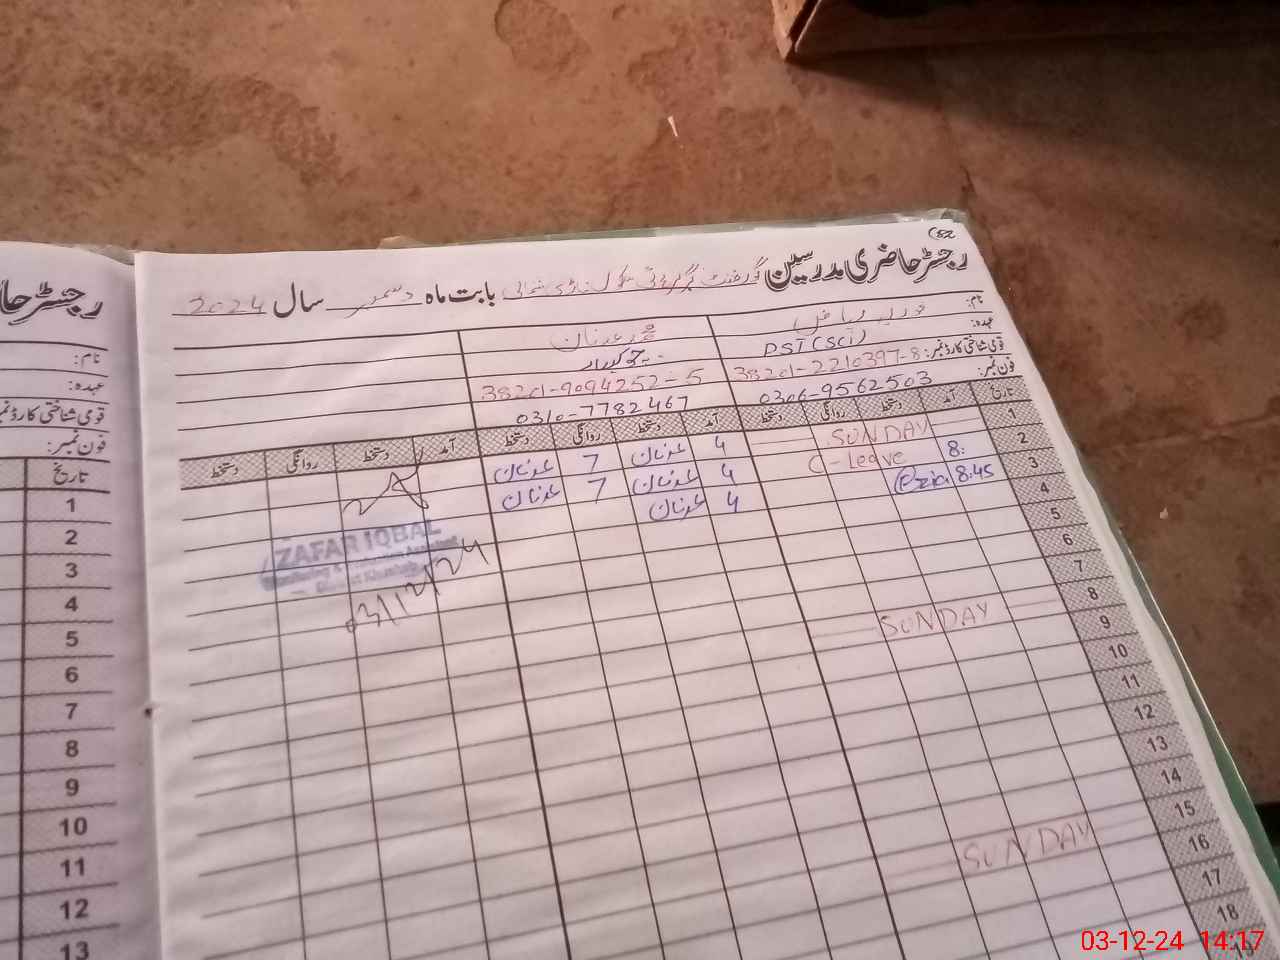 652
رجسٹر حاضری مدرسین گورنمنٹ گرلز پرائمری سکول ناڑی شمالی بابت ماہ دسمبر سال 2024
نام:
محمد عدنان
عہدہ: PST(Sci)
چوکیدار
قومی شناختی کارڈ نمبر: 38201-2210397-8
38201-9094252-5
فون نمبر: 0306-9562503
0310-7782467
تاریخ آمد دستخط روانگی دستخط آمد دستخط روانگی دستخط آمد دستخط روانگی دستخط
1 SUNDAY 4 عدنان 7 عدنان
2 8: C-Leave 4 عدنان 7 عدنان
3 8:45 4 عدنان
4
5
6
7
8 SUNDAY
9
10
11
12
13
14
15 SUNDAY
16
17
18
19
ZAFAR IQBAL
03/12/24
رجسٹر حا
نام:
عہدہ:
قومی شناختی کارڈ نمبر
فون نمبر:
تاریخ
1
2
3
4
5
6
7
8
9
10
11
12
13
03-12-24 14:17